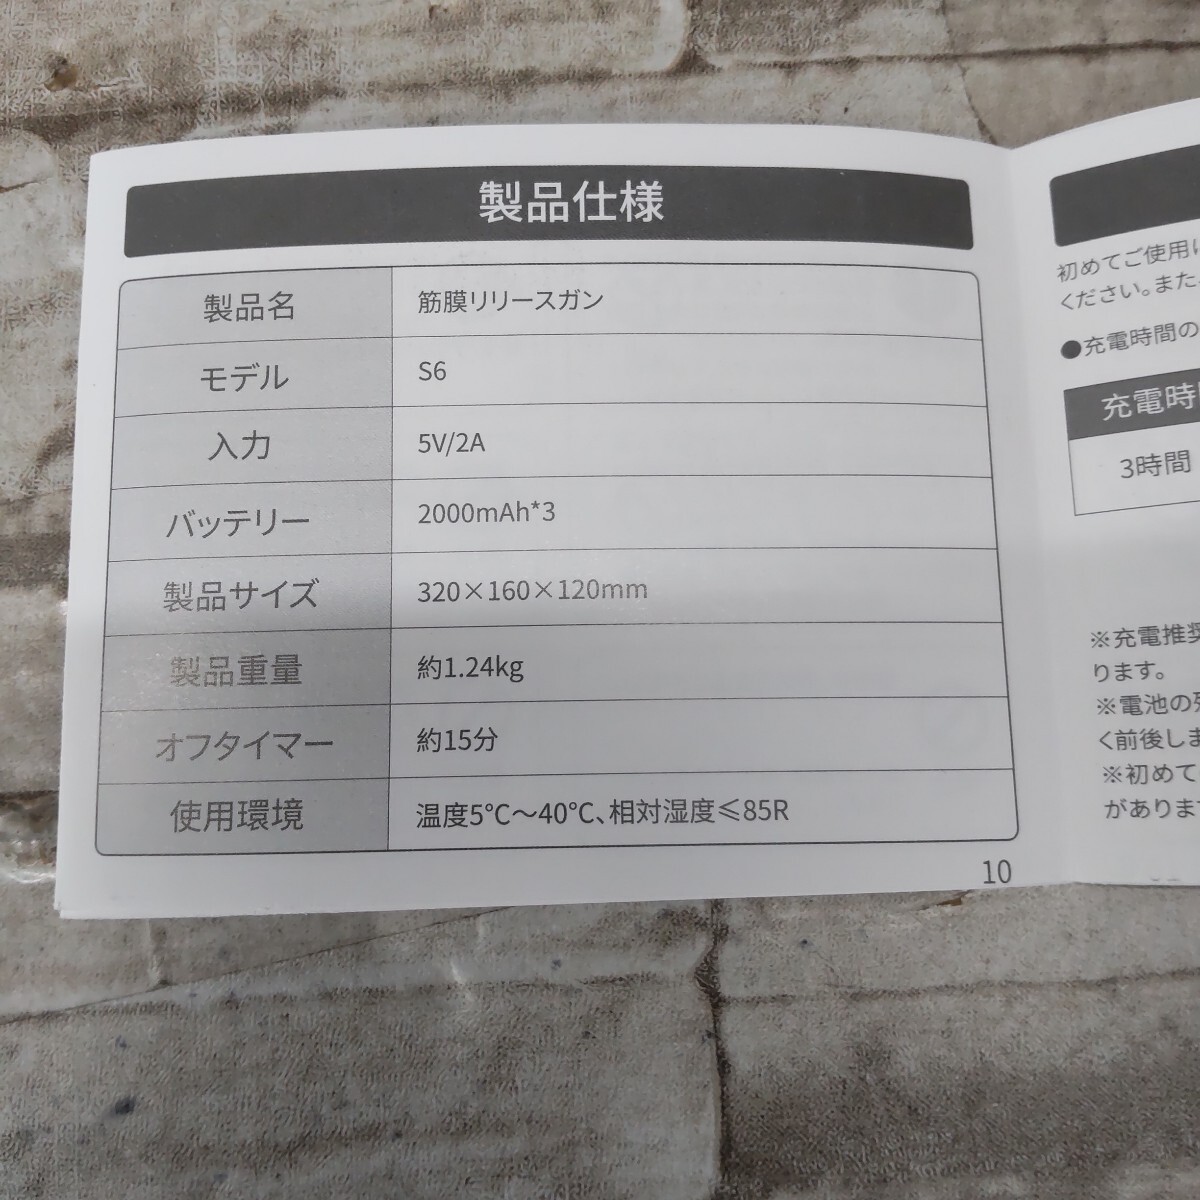 製品仕様
製品名 筋膜リリースガン
モデル S6
入力 5V/2A
バッテリー 2000mAh*3
製品サイズ 320×160×120mm
製品重量 約1.24kg
オフタイマー 約15分
使用環境 温度5℃～40℃、相対湿度≤85R
10
初めてご使用に
ください。また、
●充電時間の
充電時
3時間
※充電推奨
ります。
※電池の
く前後しま
※初めて
がありま